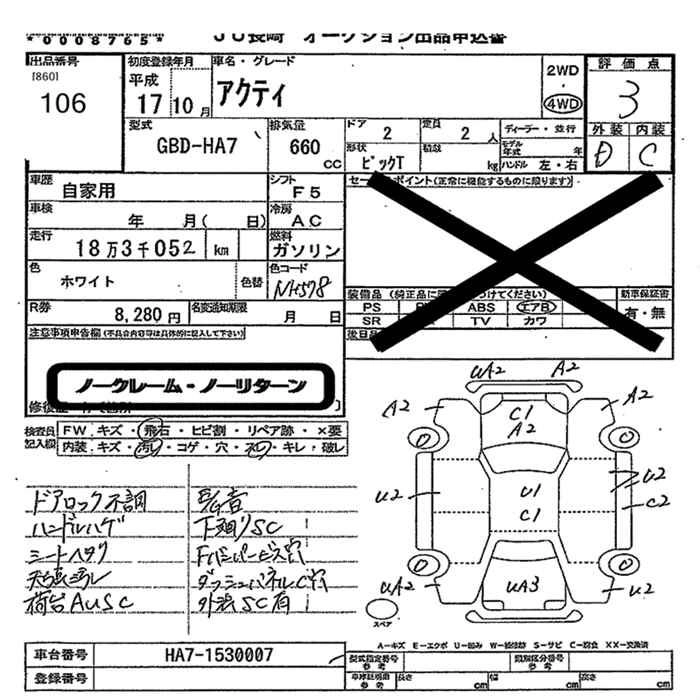 *0008765*
JU長崎 オークション出品申込書
出品番号
[860]
106
初度登録年月
平成
17 10 月
車名・グレード
アクティ
2WD
4WD
評価点
3
外装 内装
D C
型式
GBD-HA7
排気量
660
CC
ドア
2
定員
2 人
ディーラー・並行
形状
ピックT
積載
kg
モデル年式 年
ハンドル 左・右
車歴
自家用
シフト
F5
セールスポイント(正常に機能するものに限ります)
車検
年 月( 日)
冷房
AC
走行
18万3千052 km
燃料
ガソリン
色
ホワイト
色替
色コード
NH578
装備品
PS ABS エアB
SR TV カワ
新車保証書
有・無
R券
8,280円
名変通知期限
月 日
注意事項申告欄(不具合内容等は具体的に記入して下さい)
ノークレーム・ノーリターン
検査員記入欄
FW キズ・飛石・ヒビ割・リペア跡・×要
内装 キズ・汚レ・コゲ・穴・キレ・破レ
ドアロック不調
ハンドルハゲ
シートヘタリ
荷台AUSC
下廻りSC
外装SC有
UA2 A2
A2 C1 A2 A2
U2 U1 C1 U2 C2
UA2 UA3 U2
スペア
A-キズ E-エクボ U-凹み W-補修跡 S-サビ C-腐食 XX-交換済
車台番号
HA7-1530007
登録番号
型式指定番号 参考
類別区分番号 参考
長さ cm 幅 cm 高さ cm